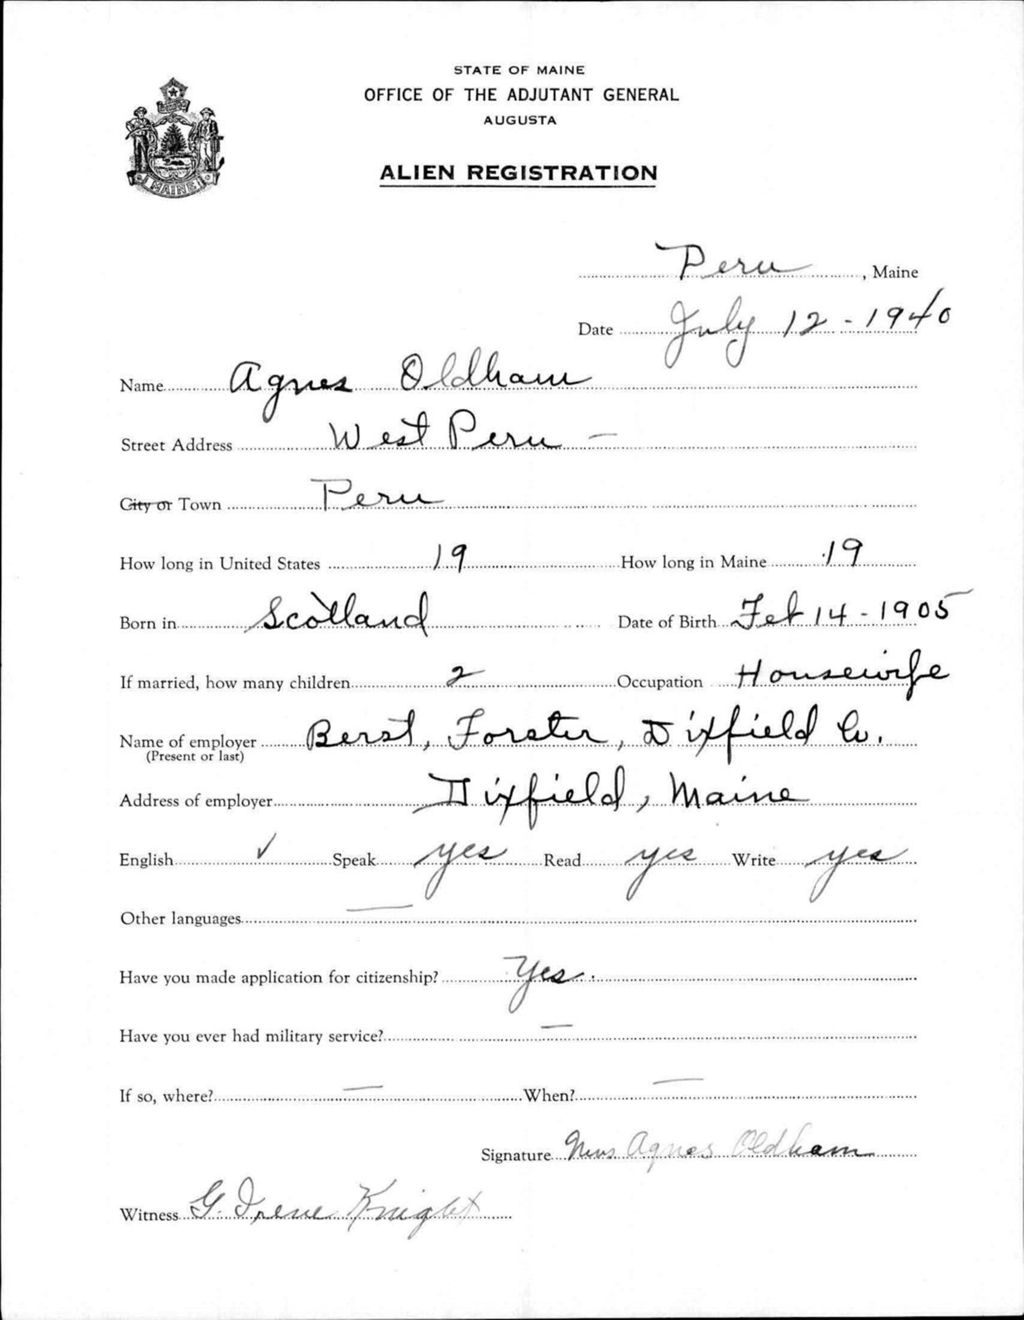 STATE OF MAINE
OFFICE OF THE ADJUTANT GENERAL
AUGUSTA
ALIEN REGISTRATION
MAINE
Peru, Maine
Date July 12 - 1940
Name Agnes Oldham
Street Address West Peru -
City or Town Peru
How long in United States 19 How long in Maine 19
Born in Scotland Date of Birth Feb 14 - 1905
If married, how many children 2 Occupation Housewife
Name of employer Berst, Forster, Dixfield Co.
(Present or last)
Address of employer Dixfield, Maine
English ✓ Speak yes Read yes Write yes
Other languages —
Have you made application for citizenship? Yes.
Have you ever had military service? —
If so, where? — When? —
Signature Mrs Agnes Oldham
Witness G. Irene Knight